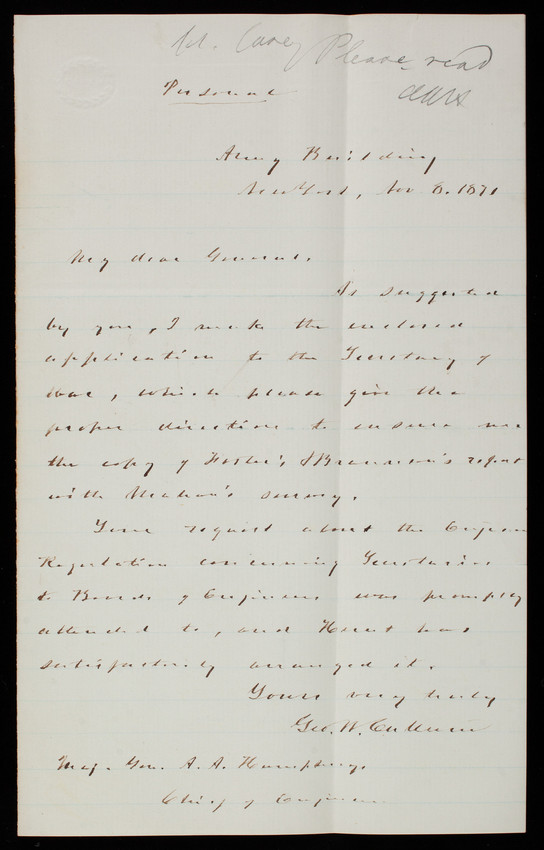 Col. Casey Please read
AAH
Personal
Army Building
New York, Nov 8. 1871
My dear General,
As suggested
by you, I make the enclosed
application to the Secretary of
War, which please give the
proper direction to ensure me
the copy of Foster's & 's report
with Mahan's survey.
Your request about the Engineer
Regulation concerning Secretaries
to Boards of Engineers was promptly
attended to, and has
satisfactorily arranged it.
Yours very truly
Geo. W. Cullum
Maj. Gen. A. A. Humphreys
Chief of Engineers